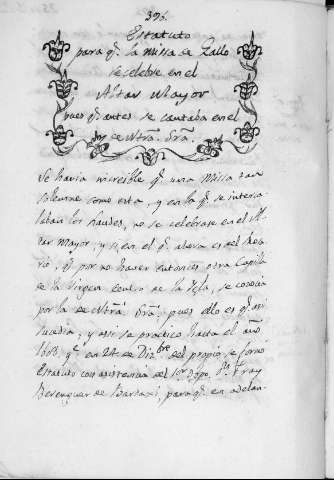 396.
Estatuto
para qe. la Missa de Gallo
se celebre en el
Altar Mayor
pues qe. antes se cantaba en el
de Ntra. Sra.
Se haria increible qe. una Missa tan
solemne como esta, y en la qe. se
los Laudes, no se celebrase en el Al-
tar Mayor; y si, en el qe. ahora es del
qe. por no haver entonces otra Capilla
de la Virgen dentro de la Ysla, se
por la de Ntra. Sra.; pues ello es qe.
y assi se practicó hasta el año
1618, qe. en 24 de Dizbre. del propio, se formó
Estatuto con assistencia del Sor. Bpo. Dn. Fray
Berenguer de Bardaxi, para qe. en adelan-